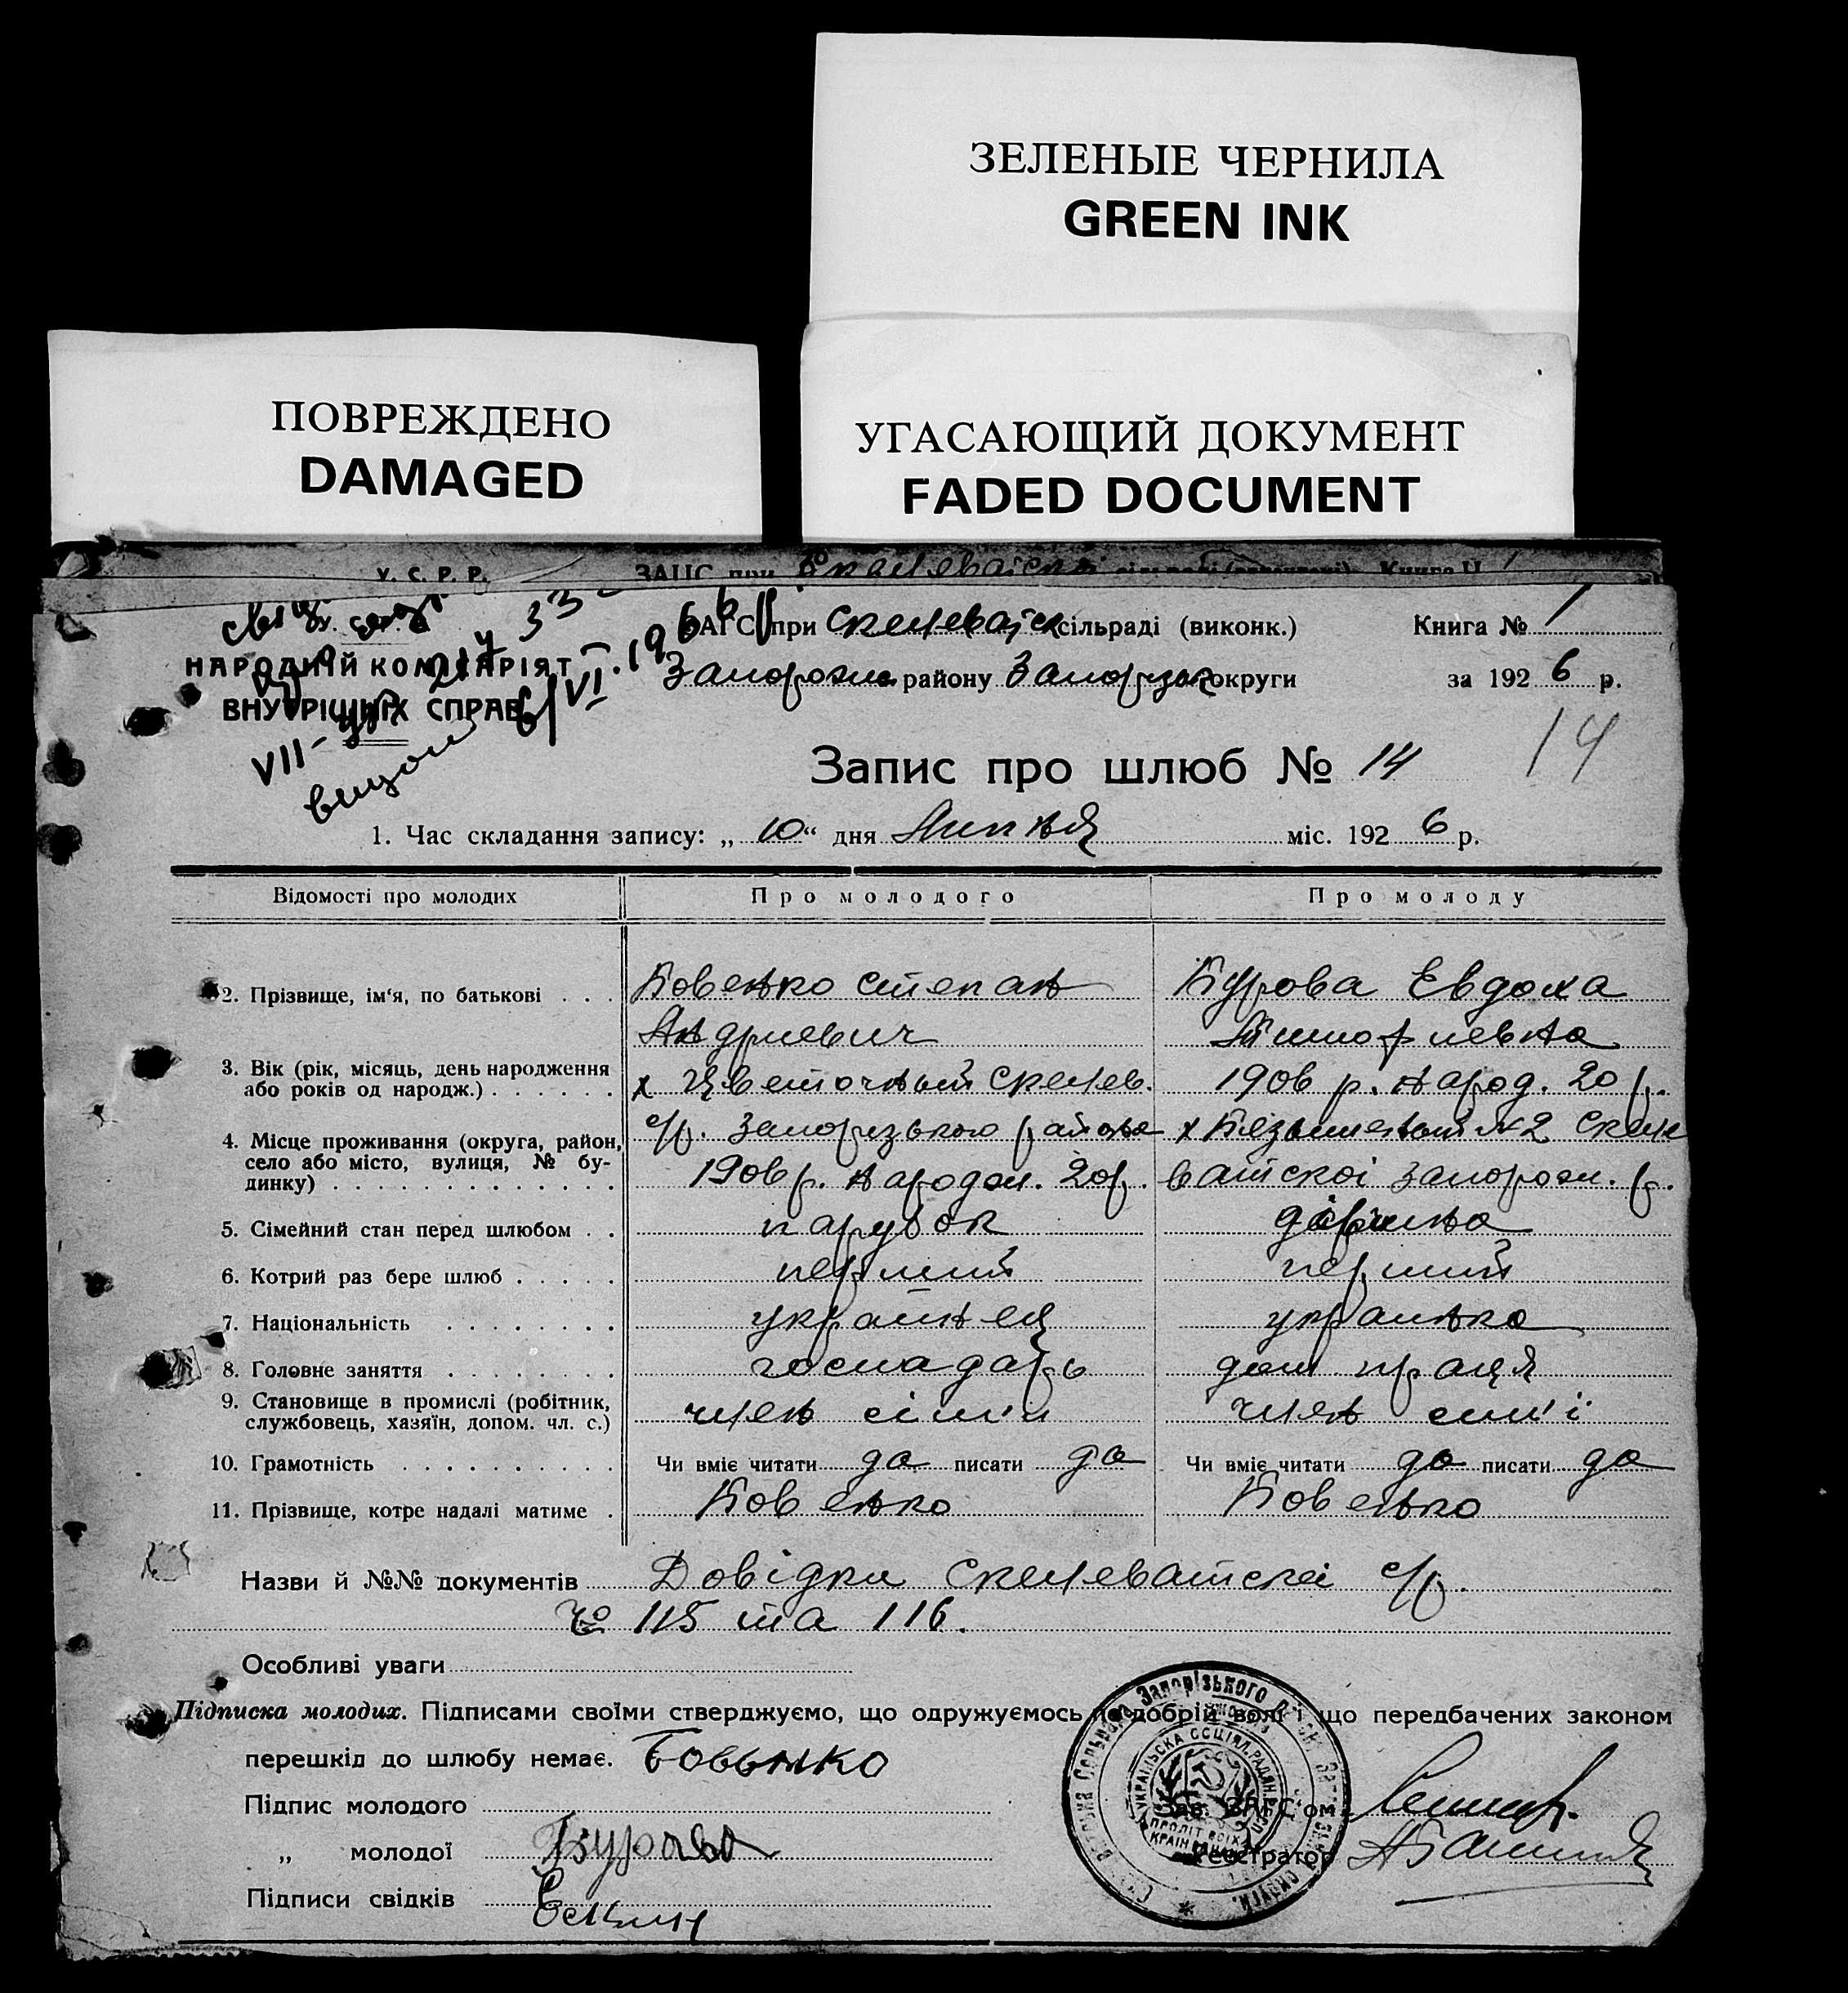 ЗЕЛЕНЫЕ ЧЕРНИЛА
GREEN INK
ПОВРЕЖДЕНО
DAMAGED
УГАСАЮЩИЙ ДОКУМЕНТ
FADED DOCUMENT
У. С. Р. Р. ЗАЦС при
ЗАГС при Скелеватск сільраді (виконк.) Книга № 1
НАРОДНІЙ КОМІСАРІЯТ
ВНУТРІШНІХ СПРАВ
Запорожс району Запорізьк округи за 1926 р.
VII-
14
Запис про шлюб № 14
1. Час складання запису: „ 10 “ дня Липня міс. 1926 р.
Відомості про молодих Про молодого Про молоду
2. Прізвище, ім‘я, по батькові Ковенко Степан Андриевич Курова Евдоха Тимофиевна
3. Вік (рік, місяць, день народження або років од народж.) х Цветочный Скелев. 1906 р. народ. 20 р.
4. Місце проживання (округа, район, село або місто, вулиця, № будинку) с/р. Запорізького району 1906 р. народж. 20 р. х №2 Скеле ватскоі Запорож. р.
5. Сімейний стан перед шлюбом парубок дівчина
6. Котрий раз бере шлюб перший перший
7. Національність украйнец украинка
8. Головне заняття господарь дом праця
9. Становище в промислі (робітник, службовець, хазяїн, допом. чл. с.) член сім'и член сим'і
10. Грамотність Чи вміє читати да писати да Чи вміє читати да писати да
11. Прізвище, котре надалі матиме Ковенко Ковенко
Назви й №№ документів Довідки Скелеватскоі с/р.
№ 115 та 116.
Особливі уваги
Підписка молодих. Підписами своїми стверджуємо, що одружуємось по добрій волі і що передбачених законом
перешкід до шлюбу немає. Ковенко
Підпис молодого
„ молодої Курова
Зав. ЗАГС‘ом
Реєстратор
Підписи свідків